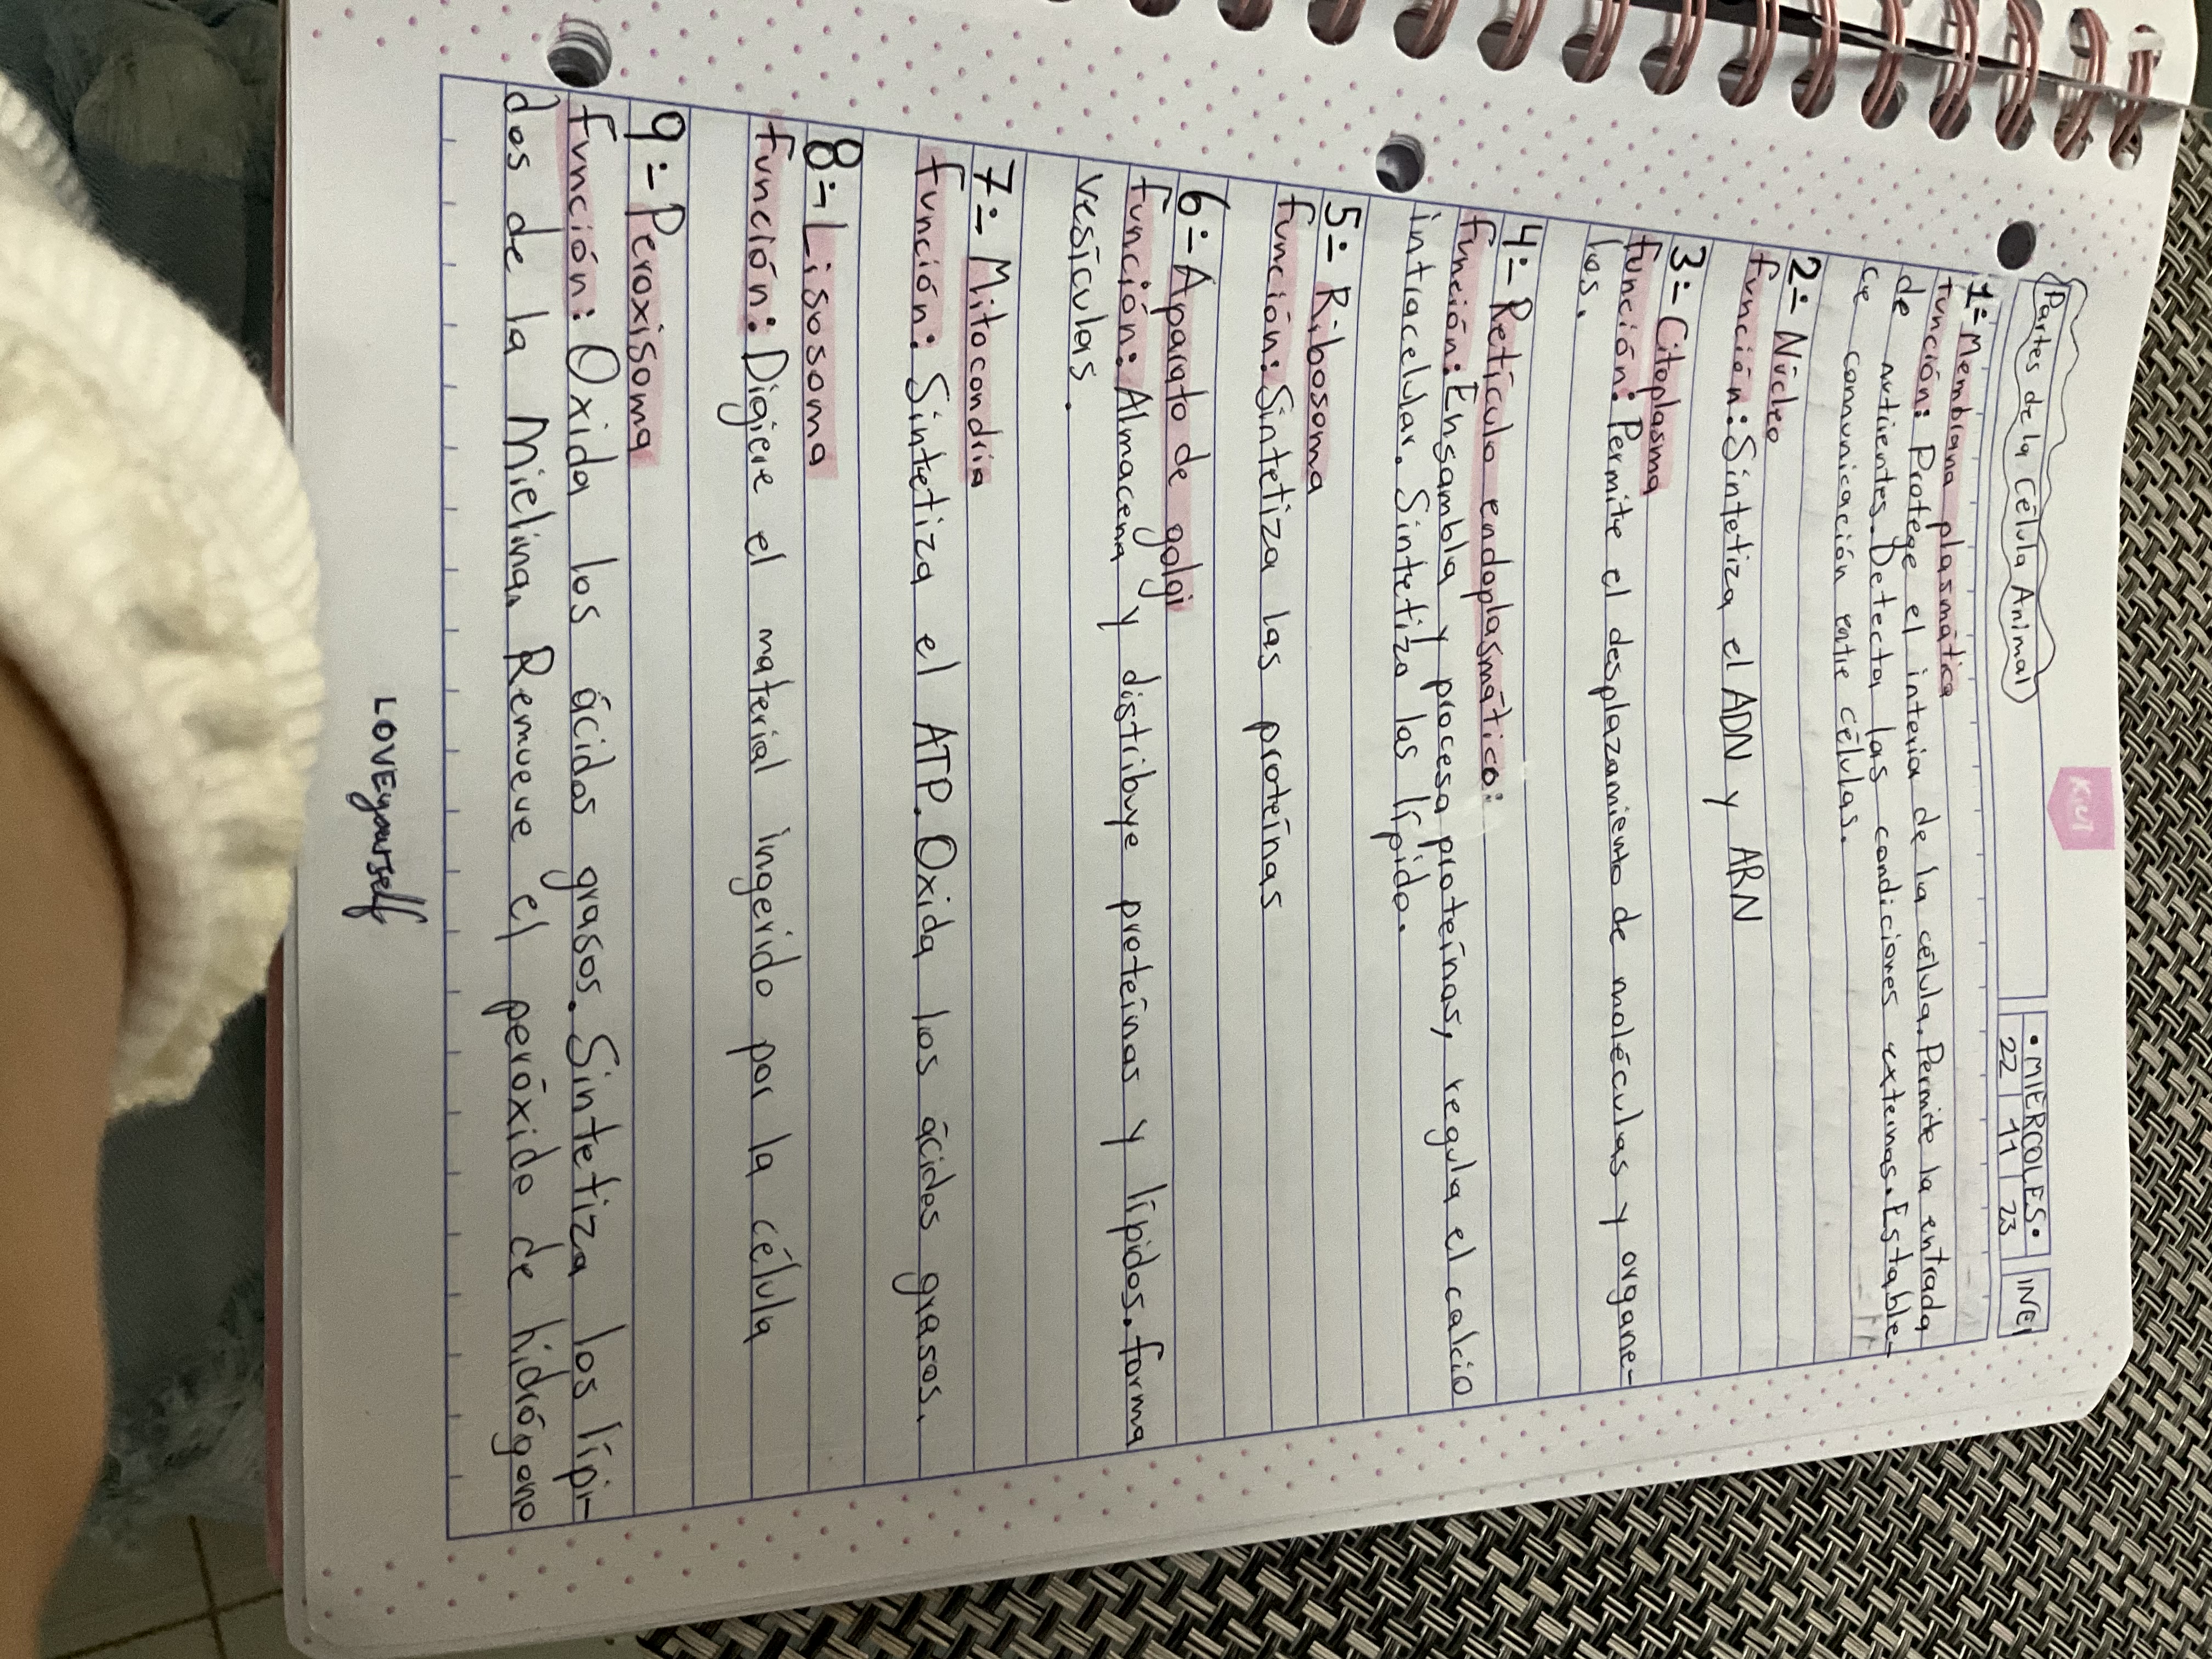 Partes de la Célula Animal
KIUT
• MIERCOLES •
22 11 23
INEI
1:- Membrana plasmática
función: Protege el interior de la célula. Permite la entrada
de nutrientes. Detecta las condiciones externas. Estable-
ce comunicación entre células.
2:- Núcleo
función: Sintetiza el ADN y ARN
3:- Citoplasma
función: Permite el desplazamiento de moléculas y organe-
los.
4:- Retículo endoplasmático:
función: Ensambla y procesa proteínas, regula el calcio
intracelular. Sintetiza los lípido.
5:- Ribosoma
función: Sintetiza las proteínas
6:- Aparato de golgi
función: Almacena y distribuye proteínas y lípidos. forma
vesículas.
7:- Mitocondria
función: Sintetiza el ATP. Oxida los ácidos grasos.
8:- Lisosoma
función: Digiere el material ingerido por la célula
9:- Peroxisoma
función: Oxida los ácidos grasos. Sintetiza los lípi-
dos de la Mielina. Remueve el peróxido de hidrógeno
LOVE yourself